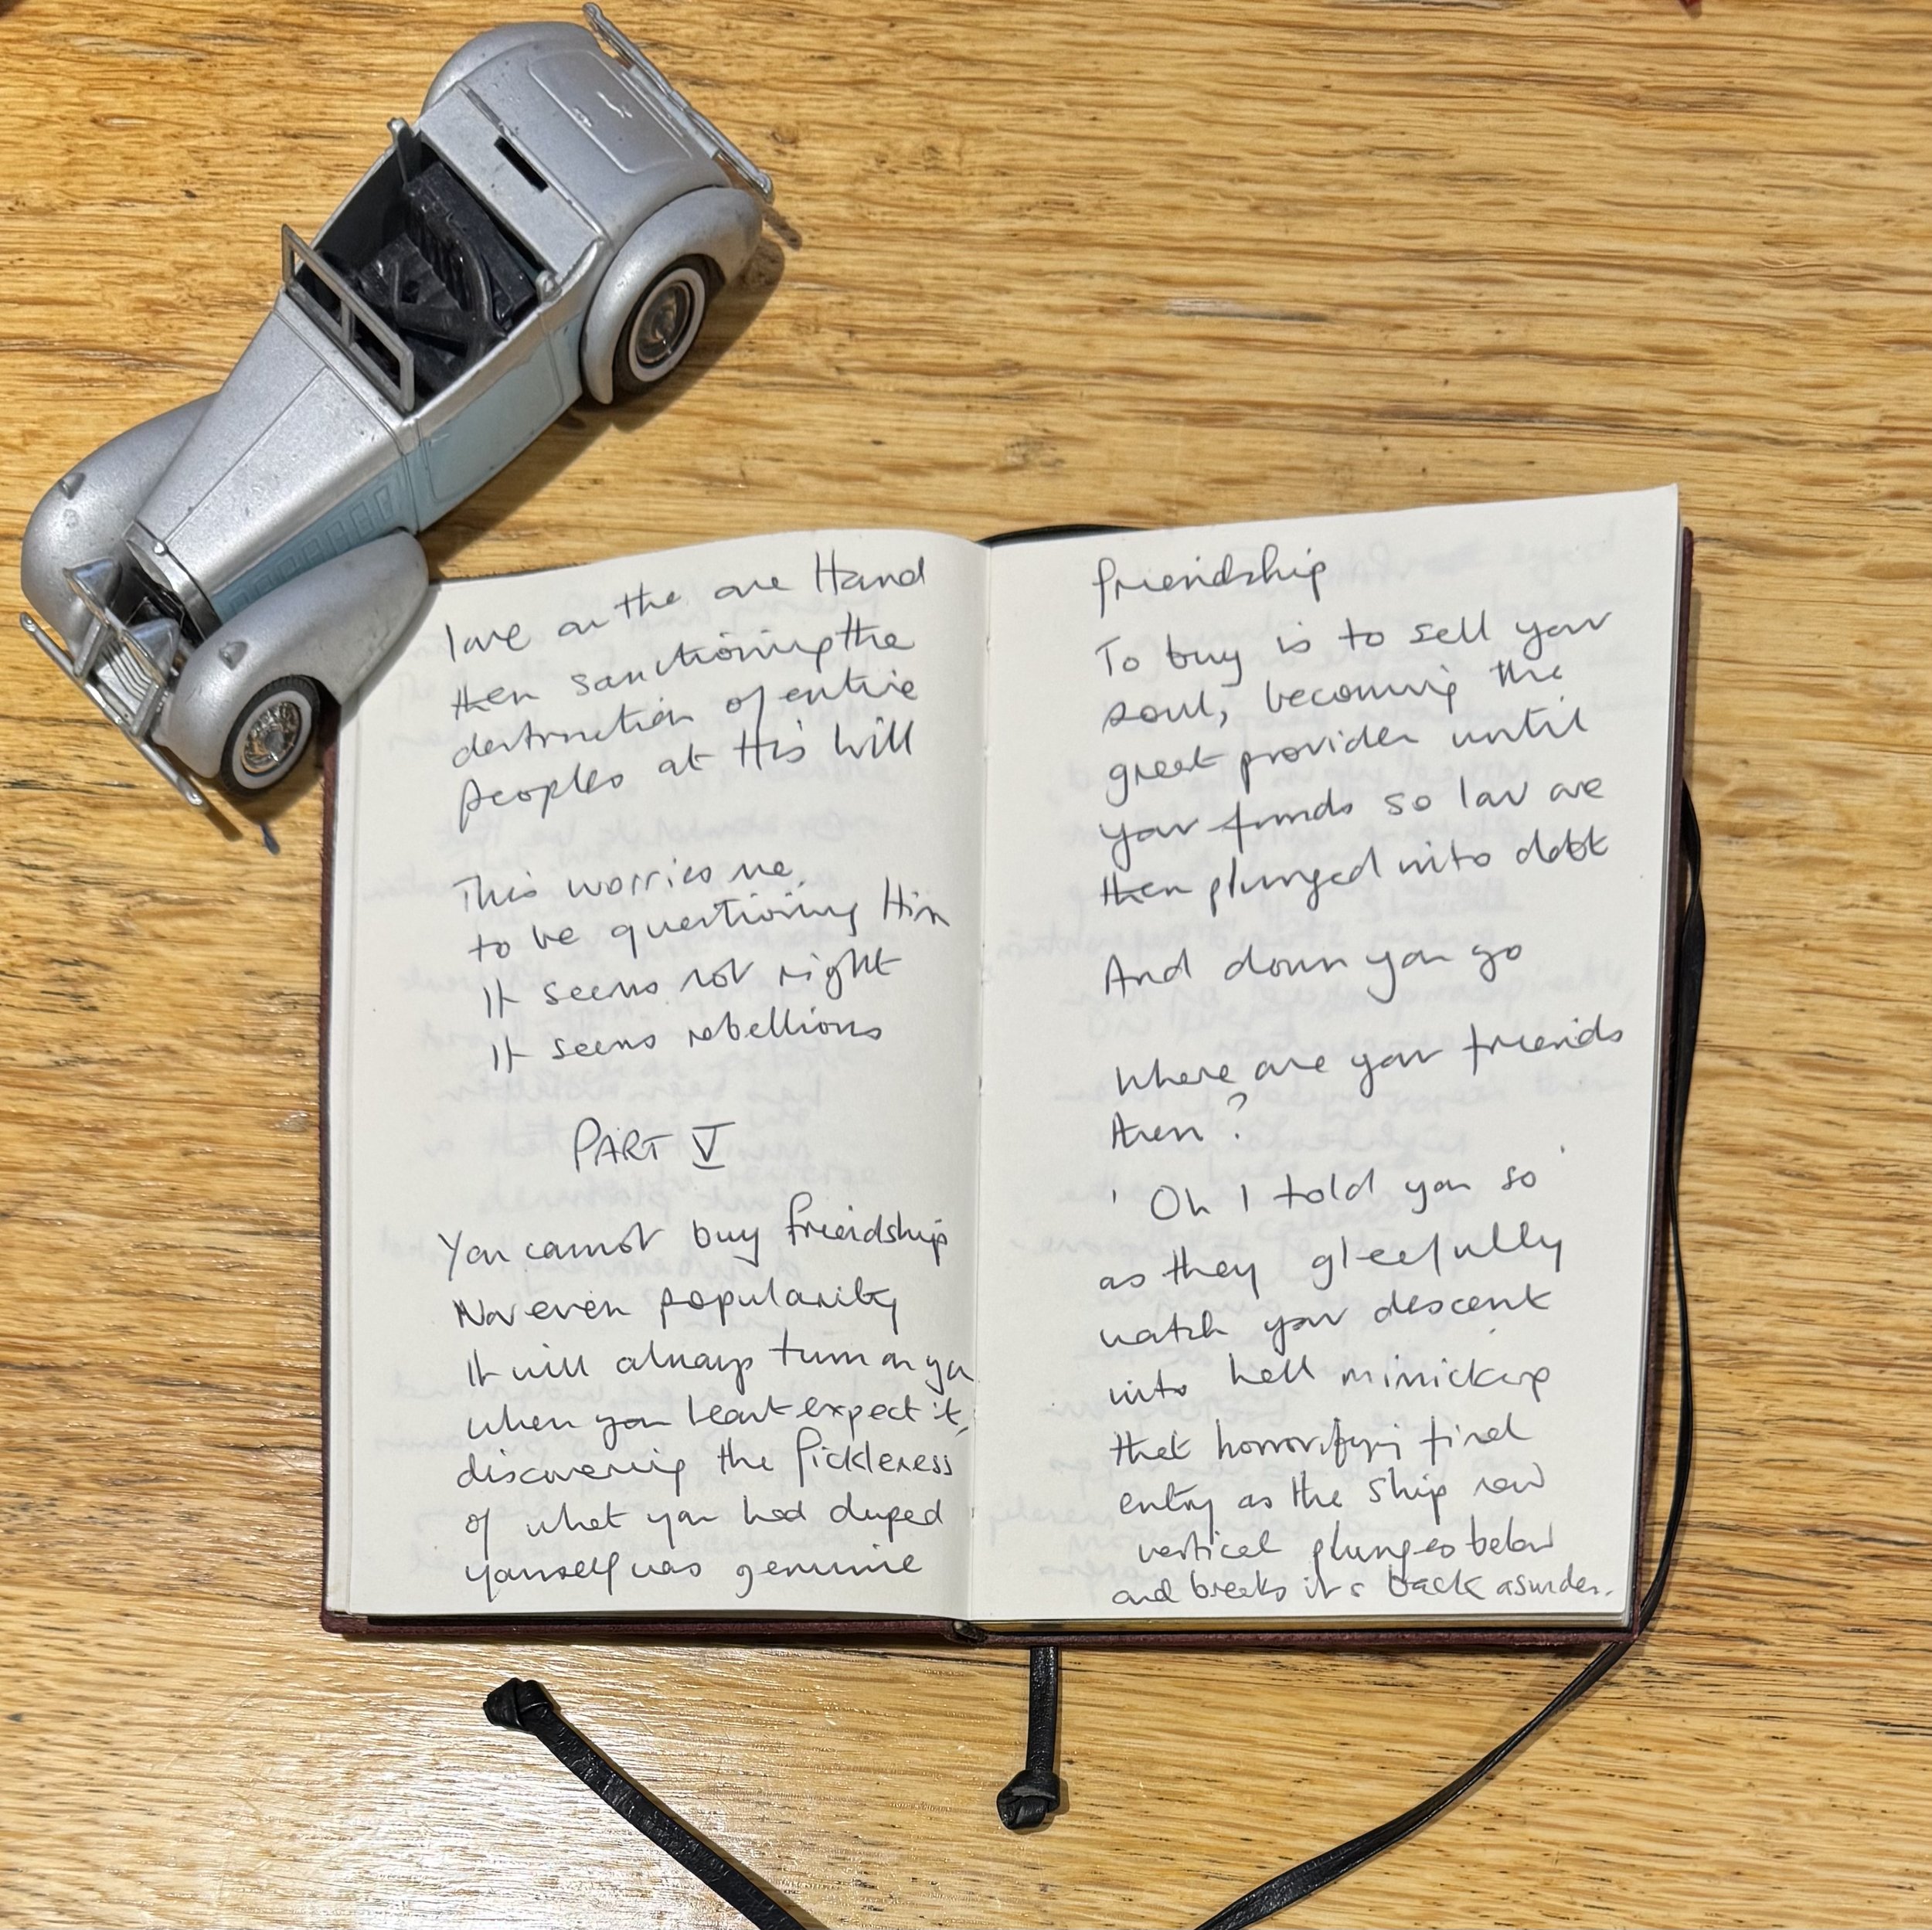 love on the one Hand
then sanctioning the
destruction of entire
peoples at His Will
This worries me,
to be questioning Him
It seems not right
It seems rebellious
PART V
You cannot buy friendship
Nor even popularity
It will always turn on you
when you least expect it,
discovering the fickleness
of what you had duped
yourself was genuine
friendship
To buy is to sell your
soul, becoming the
great provider until
your funds so low are
then plunged into debt
And down you go
Where are your friends
then?
'Oh I told you so'
as they gleefully
watch your descent
into hell mimicking
that horrifying final
entry as the ship now
vertical plunges below
and breaks it's back asunder.